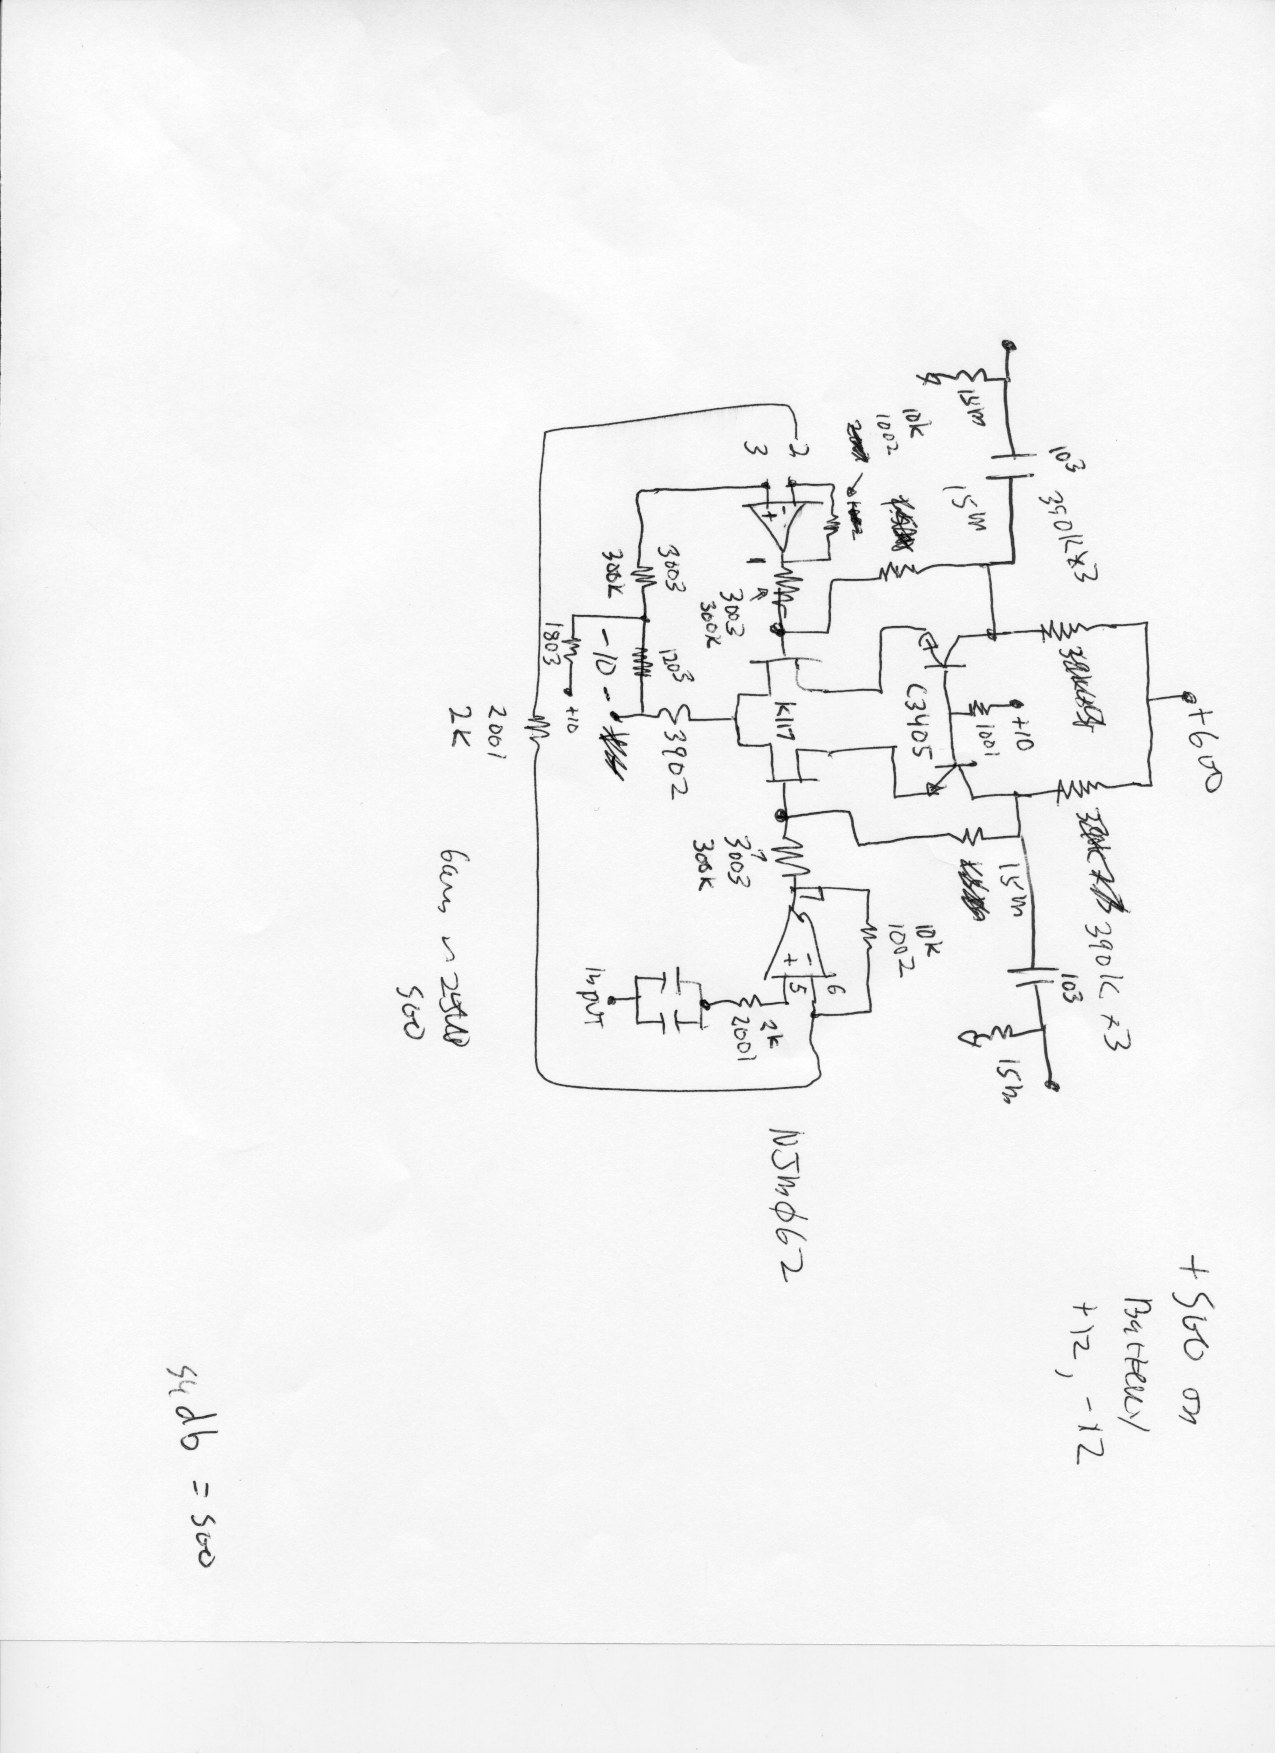 +600
390K x3
390K x3
103
103
15M
15M
15M
15M
+10
1001
C3405
K117
10K
1002
10K
1002
2
3
1
3003
300K
3003
300K
3003
300K
1203
3902
-10
1803
+10
2001
2K
7
6
5
2K
2001
input
NJM062
Gain ~
500
+500 on
Battery
+12, -12
54db = 500